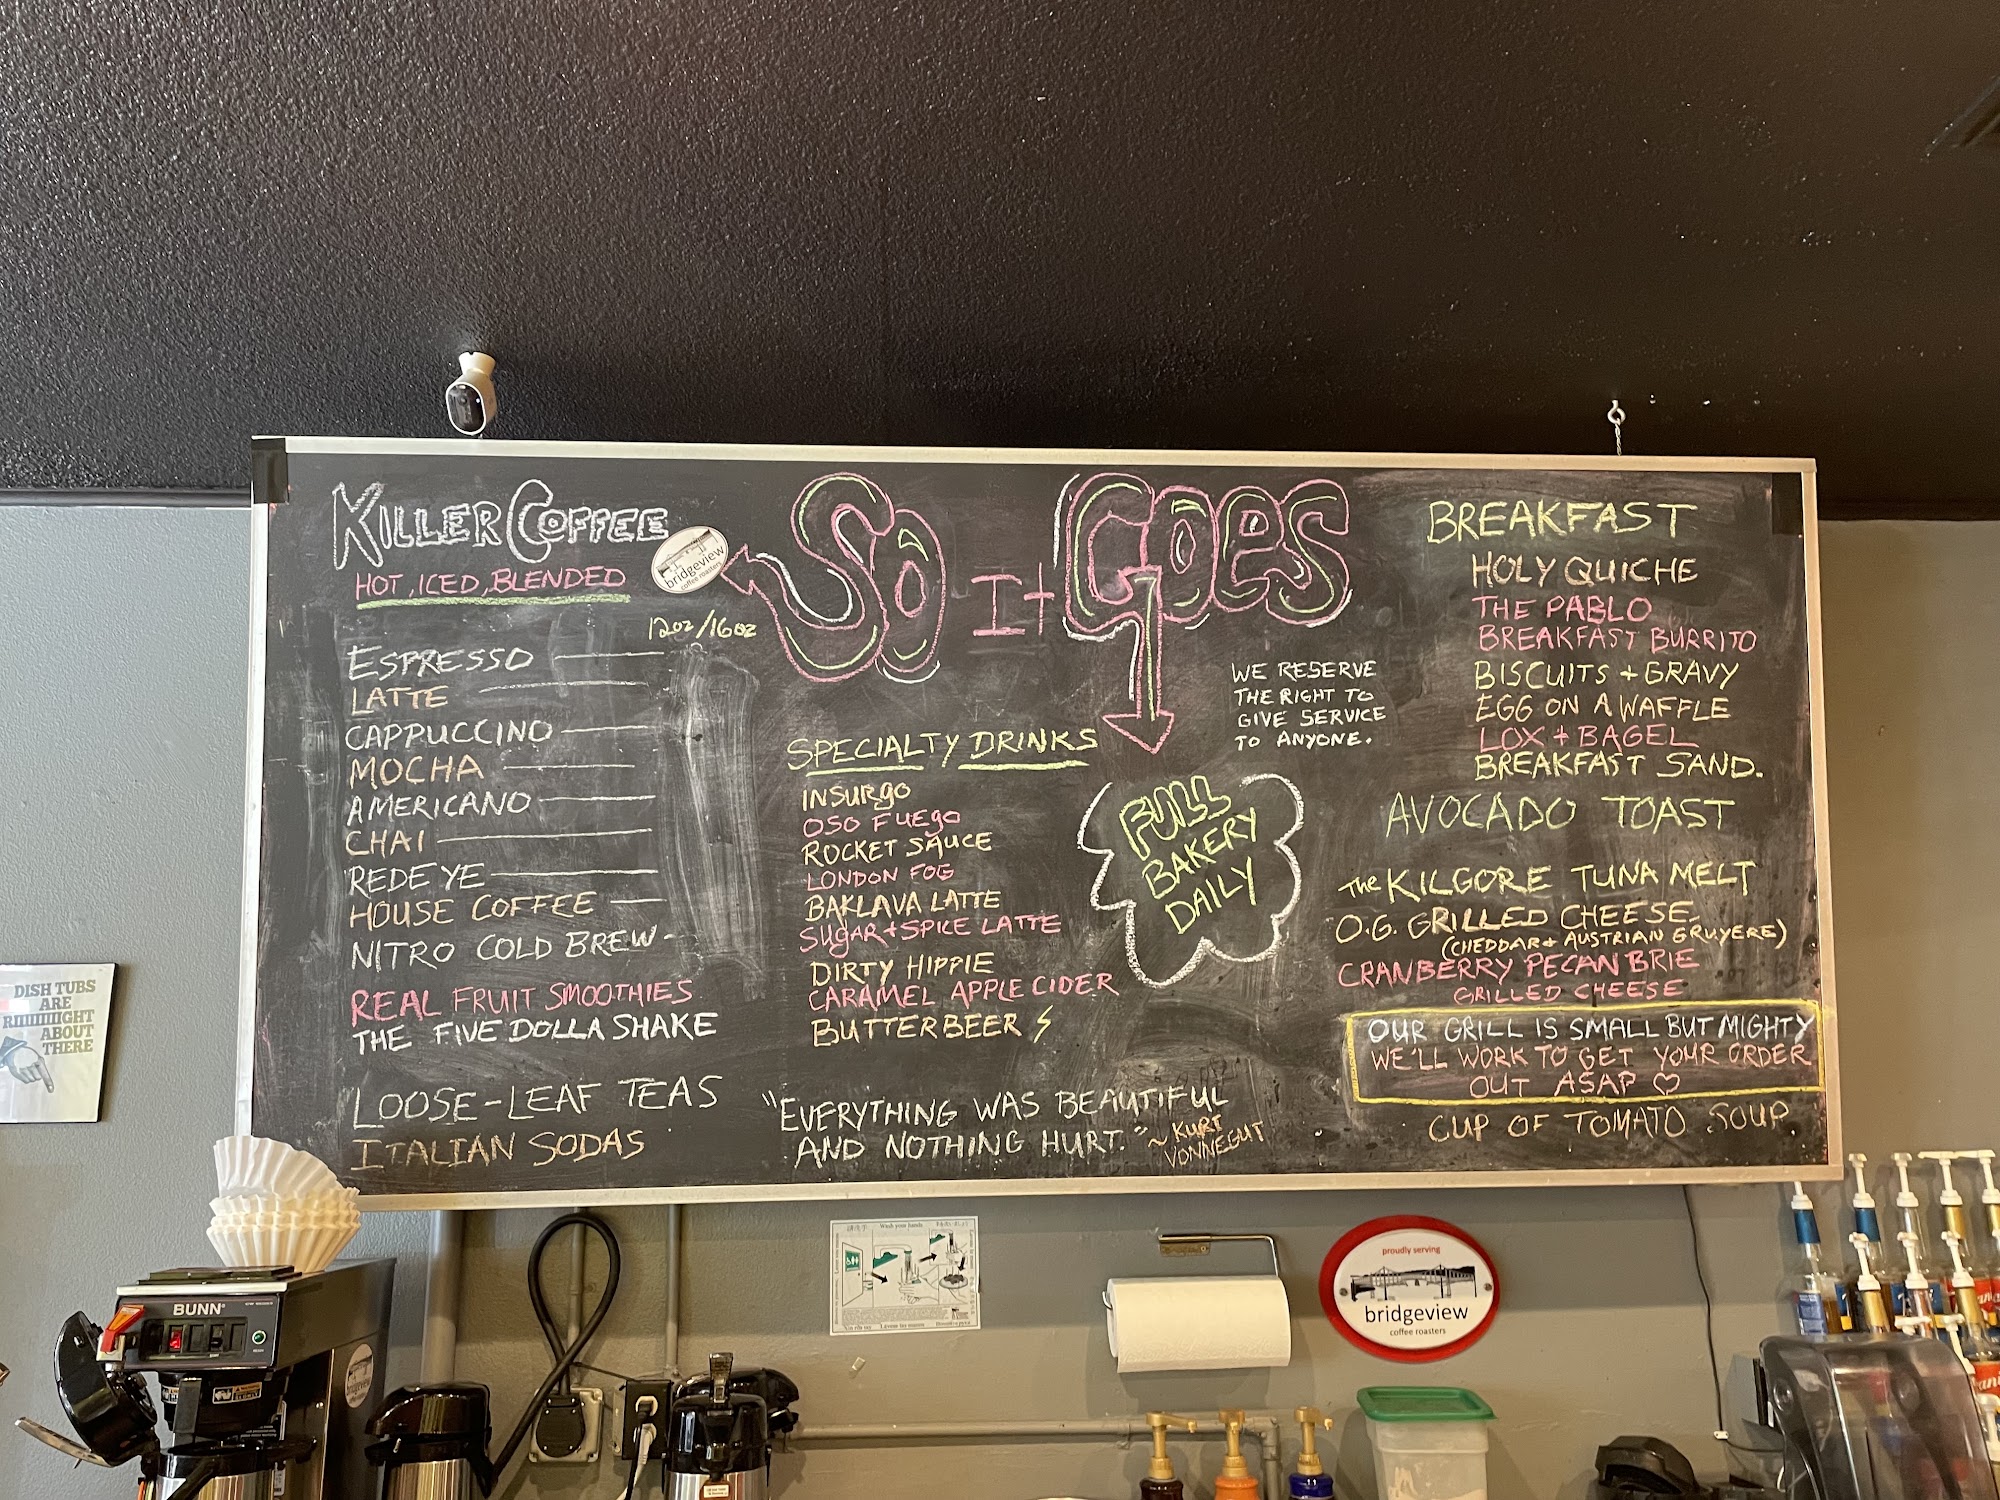 KILLER COFFEE
HOT, ICED, BLENDED
bridgeview
coffee roasters
12oz/16oz
ESPRESSO
LATTE
CAPPUCCINO
MOCHA
AMERICANO
CHAI
REDEYE
HOUSE COFFEE
NITRO COLD BREW
REAL FRUIT SMOOTHIES
THE FIVE DOLLA SHAKE
LOOSE-LEAF TEAS
ITALIAN SODAS
So It Goes
SPECIALTY DRINKS
INSURGO
OSO FUEGO
ROCKET SAUCE
LONDON FOG
BAKLAVA LATTE
SUGAR + SPICE LATTE
DIRTY HIPPIE
CARAMEL APPLE CIDER
BUTTERBEER
WE RESERVE
THE RIGHT TO
GIVE SERVICE
TO ANYONE.
FULL
BAKERY
DAILY
"EVERYTHING WAS BEAUTIFUL
AND NOTHING HURT." ~ KURT
VONNEGUT
BREAKFAST
HOLY QUICHE
THE PABLO
BREAKFAST BURRITO
BISCUITS + GRAVY
EGG ON A WAFFLE
LOX + BAGEL
BREAKFAST SAND.
AVOCADO TOAST
THE KILGORE TUNA MELT
O.G. GRILLED CHEESE
(CHEDDAR + AUSTRIAN GRUYERE)
CRANBERRY PECAN BRIE
GRILLED CHEESE
OUR GRILL IS SMALL BUT MIGHTY
WE'LL WORK TO GET YOUR ORDER
OUT ASAP ♡
CUP OF TOMATO SOUP
DISH TUBS
ARE
RIIIIIIIIGHT
ABOUT
THERE
BUNN
Wash your hands
proudly serving
bridgeview
coffee roasters